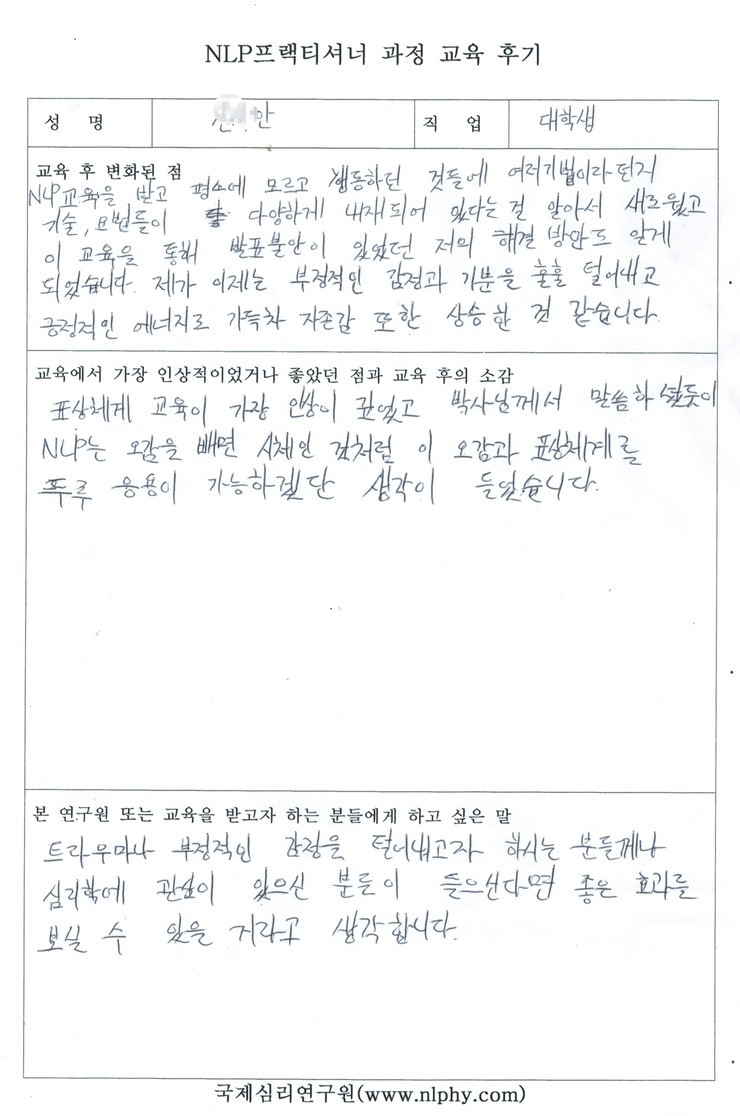 NLP프랙티셔너 과정 교육 후기
성 명 안 직 업 대학생
교육 후 변화된 점
NLP교육을 받고 평소에 모르고 행동하던 것들에 여러기법이라던지
기술, 요법들이 다양하게 내재되어 있다는 걸 알아서 새로웠고
이 교육을 통해 발표불안이 있었던 저의 해결 방안도 알게
되었습니다. 제가 이제는 부정적인 감정과 기분을 훌훌 털어내고
긍정적인 에너지로 가득차 자존감 또한 상승한 것 같습니다.
교육에서 가장 인상적이었거나 좋았던 점과 교육 후의 소감
표상체계 교육이 가장 인상이 깊었고 박사님께서 말씀하셨듯이
NLP는 오감을 빼면 시체인 것처럼 이 오감과 표상체계를
두루 응용이 가능하겠단 생각이 들었습니다.
본 연구원 또는 교육을 받고자 하는 분들에게 하고 싶은 말
트라우마나 부정적인 감정을 털어내고자 하시는 분들께나
심리학에 관심이 있으신 분들이 들으신다면 좋은 효과를
보실 수 있을 거라고 생각합니다.
국제심리연구원(www.nlphy.com)